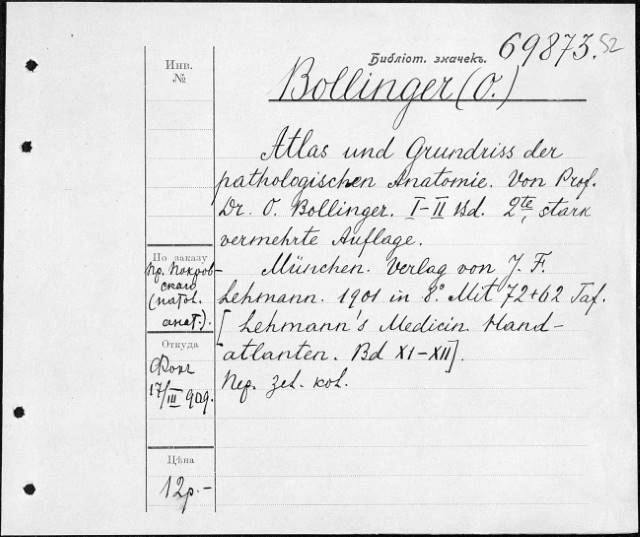 Библіот. значекъ. 69873. 52
Инв.
№
Bollinger (O.)
Atlas und Grundriss der
pathologischen Anatomie. Von Prof.
Dr. O. Bollinger. I-II Bd. 2te, stark
vermehrte Auflage.
München. Verlag von J. F.
Lehmann. 1901 in 8º. Mit 72+62 Taf.
[Lehmann's Medicin. Hand-
atlanten. Bd XI-XII].
Пер. зел. кол.
По заказу
Пр. Покров-
скаго
(патол.
анат.).
Откуда
Фонг
17/III 909.
Цѣна
12р.-